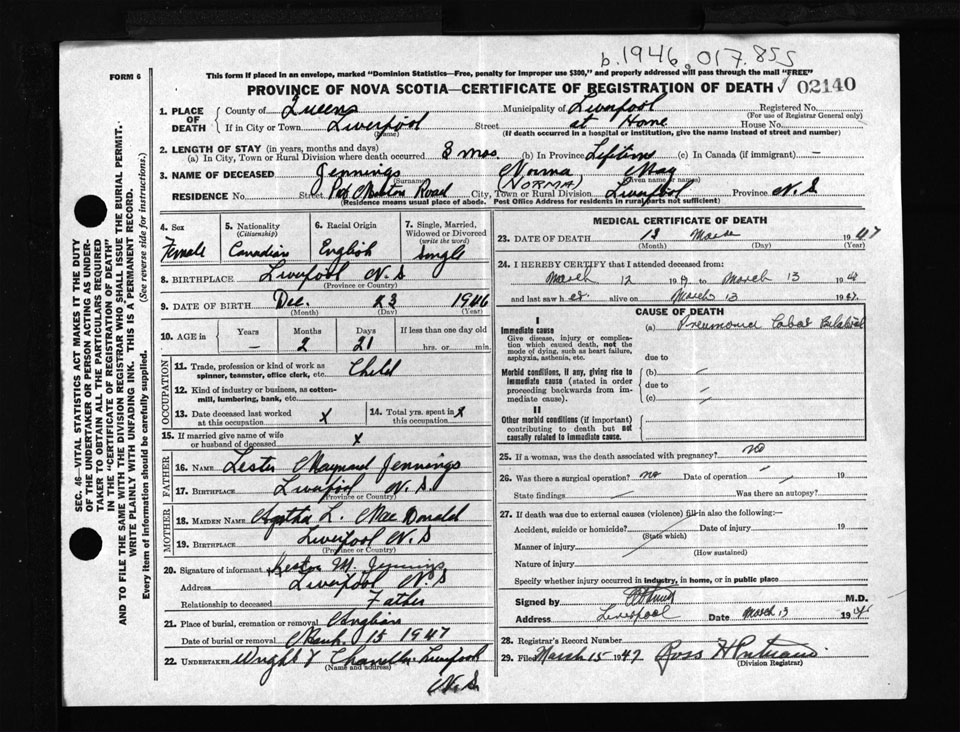 b.1946.017.855
FORM 6
This form if placed in an envelope, marked "Dominion Statistics—Free, penalty for improper use $300," and properly addressed will pass through the mail "FREE"
PROVINCE OF NOVA SCOTIA—CERTIFICATE OF REGISTRATION OF DEATH 02140
SEC. 46—VITAL STATISTICS ACT MAKES IT THE DUTY
OF THE UNDERTAKER OR PERSON ACTING AS UNDER-
TAKER TO OBTAIN ALL THE PARTICULARS REQUIRED
IN THE "CERTIFICATE OF REGISTRATION OF DEATH"
AND TO FILE THE SAME WITH THE DIVISION REGISTRAR WHO SHALL ISSUE THE BURIAL PERMIT.
WRITE PLAINLY WITH UNFADING INK. THIS IS A PERMANENT RECORD.
Every item of information should be carefully supplied. (See reverse side for instructions.)
1. PLACE OF DEATH County of Queens Municipality of Liverpool Registered No.
(For use of Registrar General only)
If in City or Town Liverpool Street at Home House No. —
(Name) (If death occurred in a hospital or institution, give the name instead of street and number)
2. LENGTH OF STAY (in years, months and days)
(a) In City, Town or Rural Division where death occurred 3 mos. (b) In Province Lifetime (c) In Canada (if immigrant) —
3. NAME OF DECEASED Jennings Norma May
(Surname) (NORMA) (Given name or names)
RESIDENCE No. Street Road City, Town or Rural Division Liverpool Province N.S
(Residence means usual place of abode. Post Office Address for residents in rural parts not sufficient)
4. Sex Female
5. Nationality (Citizenship) Canadian
6. Racial Origin English
7. Single, Married, Widowed or Divorced (write the word) Single
8. BIRTHPLACE Liverpool N.S
(Province or Country)
9. DATE OF BIRTH Dec. 23 1946
(Month) (Day) (Year)
10. AGE in Years — Months 2 Days 21 If less than one day old hrs. or min.
OCCUPATION
11. Trade, profession or kind of work as spinner, teamster, office clerk, etc. Child
12. Kind of industry or business, as cotton-mill, lumbering, bank, etc.
13. Date deceased last worked at this occupation x 14. Total yrs. spent in this occupation x
15. If married give name of wife or husband of deceased x
FATHER
16. NAME Lester Maynard Jennings
17. BIRTHPLACE Liverpool N.S.
(Province or Country)
MOTHER
18. MAIDEN NAME Agatha L. MacDonald
19. BIRTHPLACE Liverpool N.S
(Province or Country)
20. Signature of informant Lester M. Jennings
Address Liverpool N.S
Relationship to deceased Father
21. Place of burial, cremation or removal
Date of burial or removal March 15 1947
22. UNDERTAKER Wright & Chandler Liverpool
(Name and address)
N.S.
MEDICAL CERTIFICATE OF DEATH
23. DATE OF DEATH 13 1947
(Month) (Day) (Year)
24. I HEREBY CERTIFY that I attended deceased from:
March 12 19 to March 13 19
and last saw her alive on March 13 19
CAUSE OF DEATH
I
Immediate cause
Give disease, injury or complication which caused death, not the mode of dying, such as heart failure, asphyxia, asthenia, etc.
(a) Pneumonia Lobar Bilateral
due to
Morbid conditions, if any, giving rise to immediate cause (stated in order proceeding backwards from immediate cause).
(b)
due to
(c)
II
Other morbid conditions (if important) contributing to death but not causally related to immediate cause.
25. If a woman, was the death associated with pregnancy? no
26. Was there a surgical operation? no Date of operation 19
State findings Was there an autopsy?
27. If death was due to external causes (violence) fill in also the following:—
Accident, suicide or homicide? Date of injury 19
(State which)
Manner of injury
(How sustained)
Nature of injury
Specify whether injury occurred in industry, in home, or in public place
Signed by M.D.
Address Liverpool Date March 13 19
28. Registrar's Record Number
29. Filed March 15 1947 Ross H
(Division Registrar)